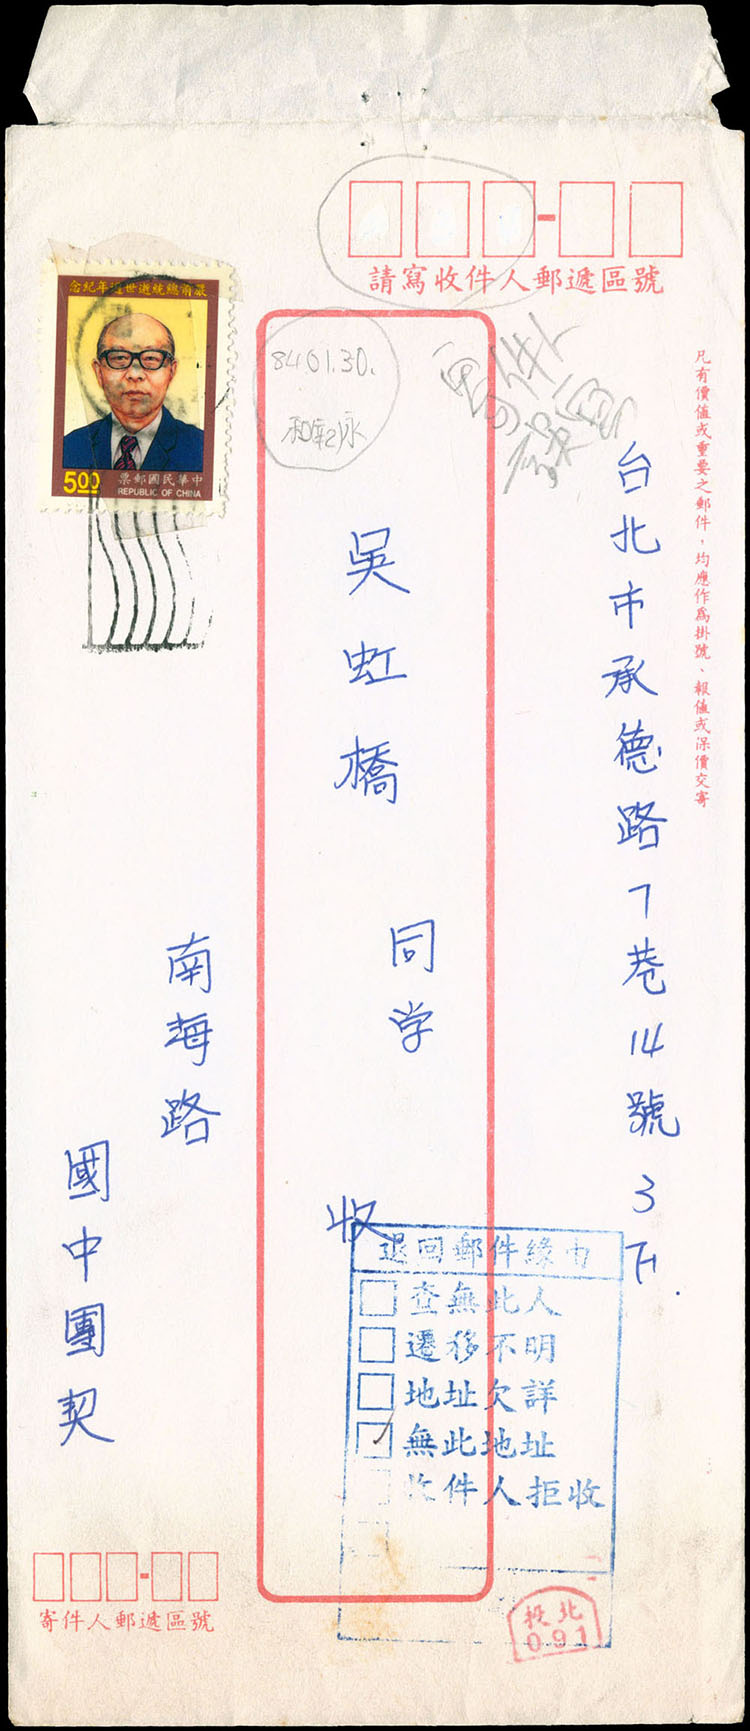 請寫收件人郵遞區號
嚴前總統逝世週年紀念
5.00
中華民國郵票
REPUBLIC OF CHINA
84.01.30.
凡有價值或重要之郵件，均應作為掛號、報值或保價交寄
台北市承德路7巷14號3F.
吳虹橋 同学 收
南海路
國中團契
退回郵件緣由
查無此人
遷移不明
地址欠詳
無此地址
收件人拒收
北投
091
寄件人郵遞區號